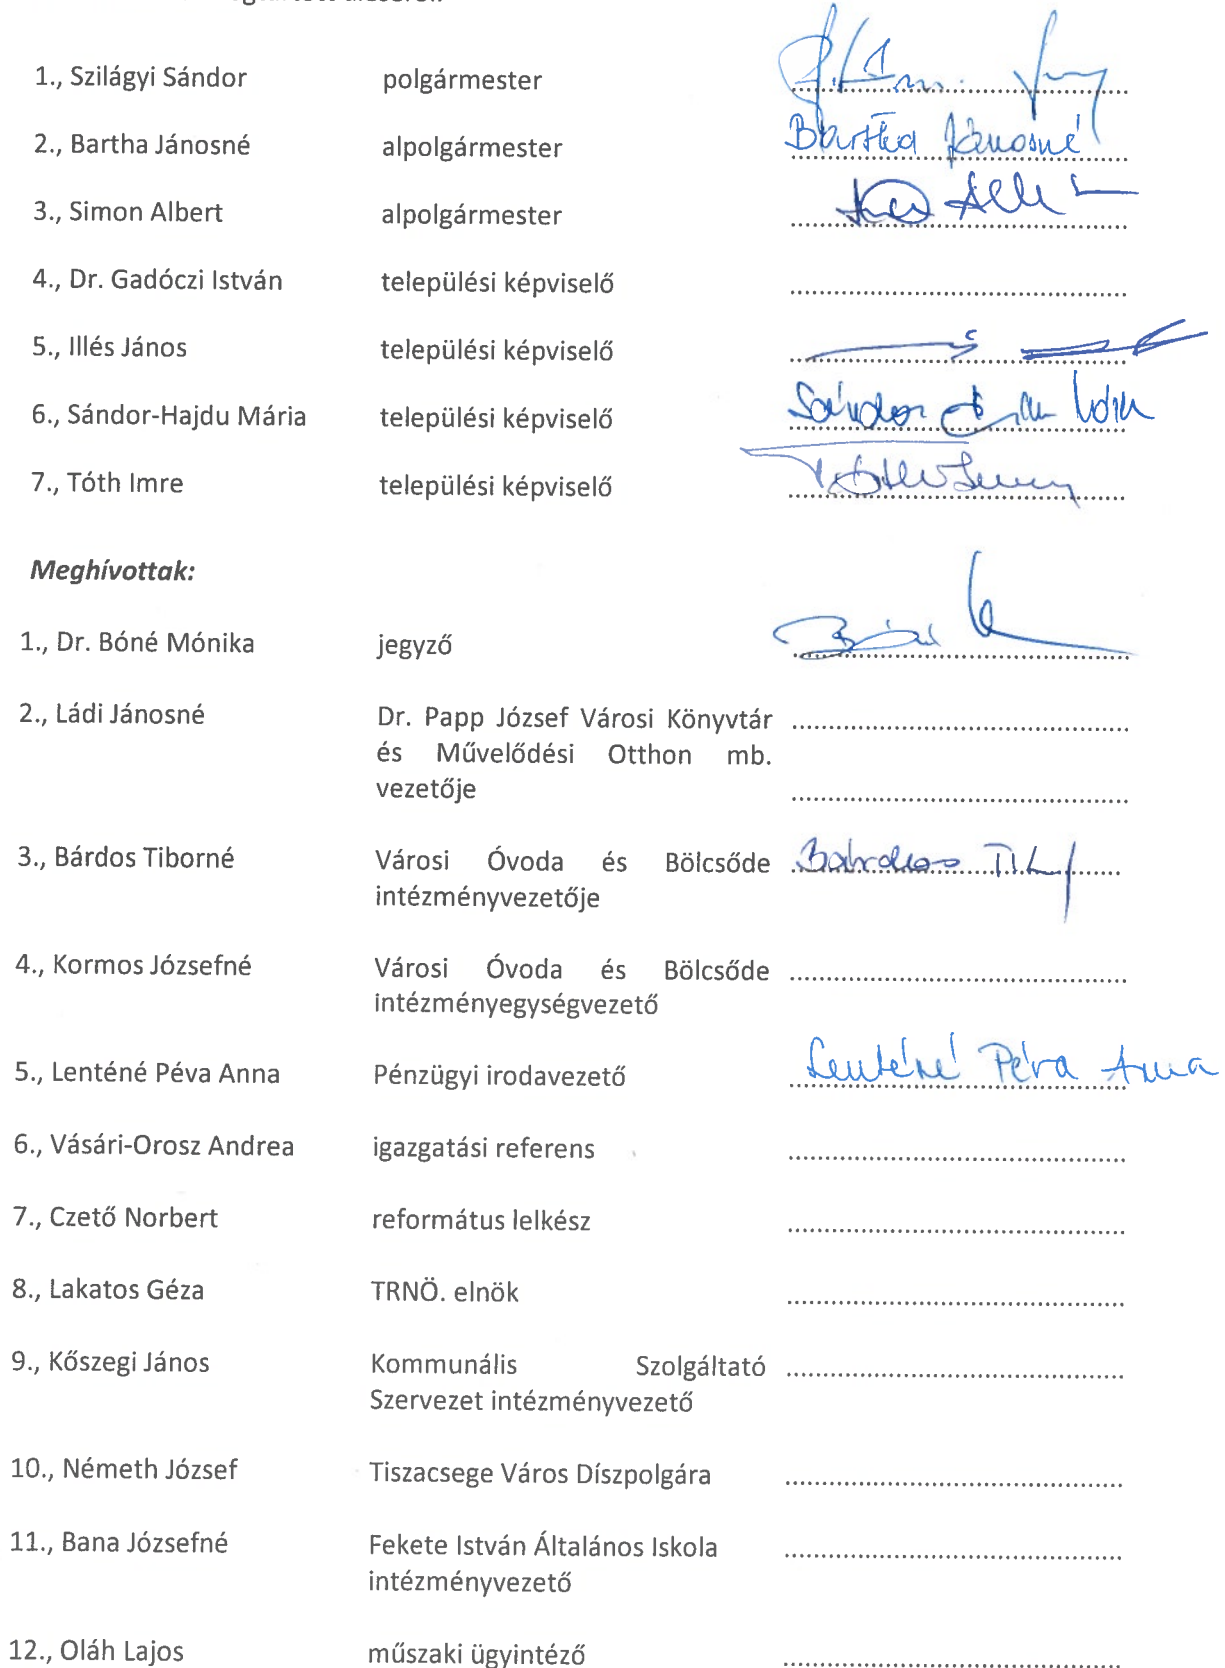 1., Szilágyi Sándor polgármester
2., Bartha Jánosné alpolgármester Bartha Jánosné
3., Simon Albert alpolgármester
4., Dr. Gadóczi István települési képviselő
5., Illés János települési képviselő
6., Sándor-Hajdu Mária települési képviselő Sándor
7., Tóth Imre települési képviselő Tóth Imre
Meghívottak:
1., Dr. Bóné Mónika jegyző
2., Ládi Jánosné Dr. Papp József Városi Könyvtár
és Művelődési Otthon mb.
vezetője
3., Bárdos Tiborné Városi Óvoda és Bölcsőde Bárdos
intézményvezetője
4., Kormos Józsefné Városi Óvoda és Bölcsőde
intézményegységvezető
5., Lenténé Péva Anna Pénzügyi irodavezető Lenténé Péva Anna
6., Vásári-Orosz Andrea igazgatási referens
7., Czető Norbert református lelkész
8., Lakatos Géza TRNÖ. elnök
9., Kőszegi János Kommunális Szolgáltató
Szervezet intézményvezető
10., Németh József Tiszacsege Város Díszpolgára
11., Bana Józsefné Fekete István Általános Iskola
intézményvezető
12., Oláh Lajos műszaki ügyintéző